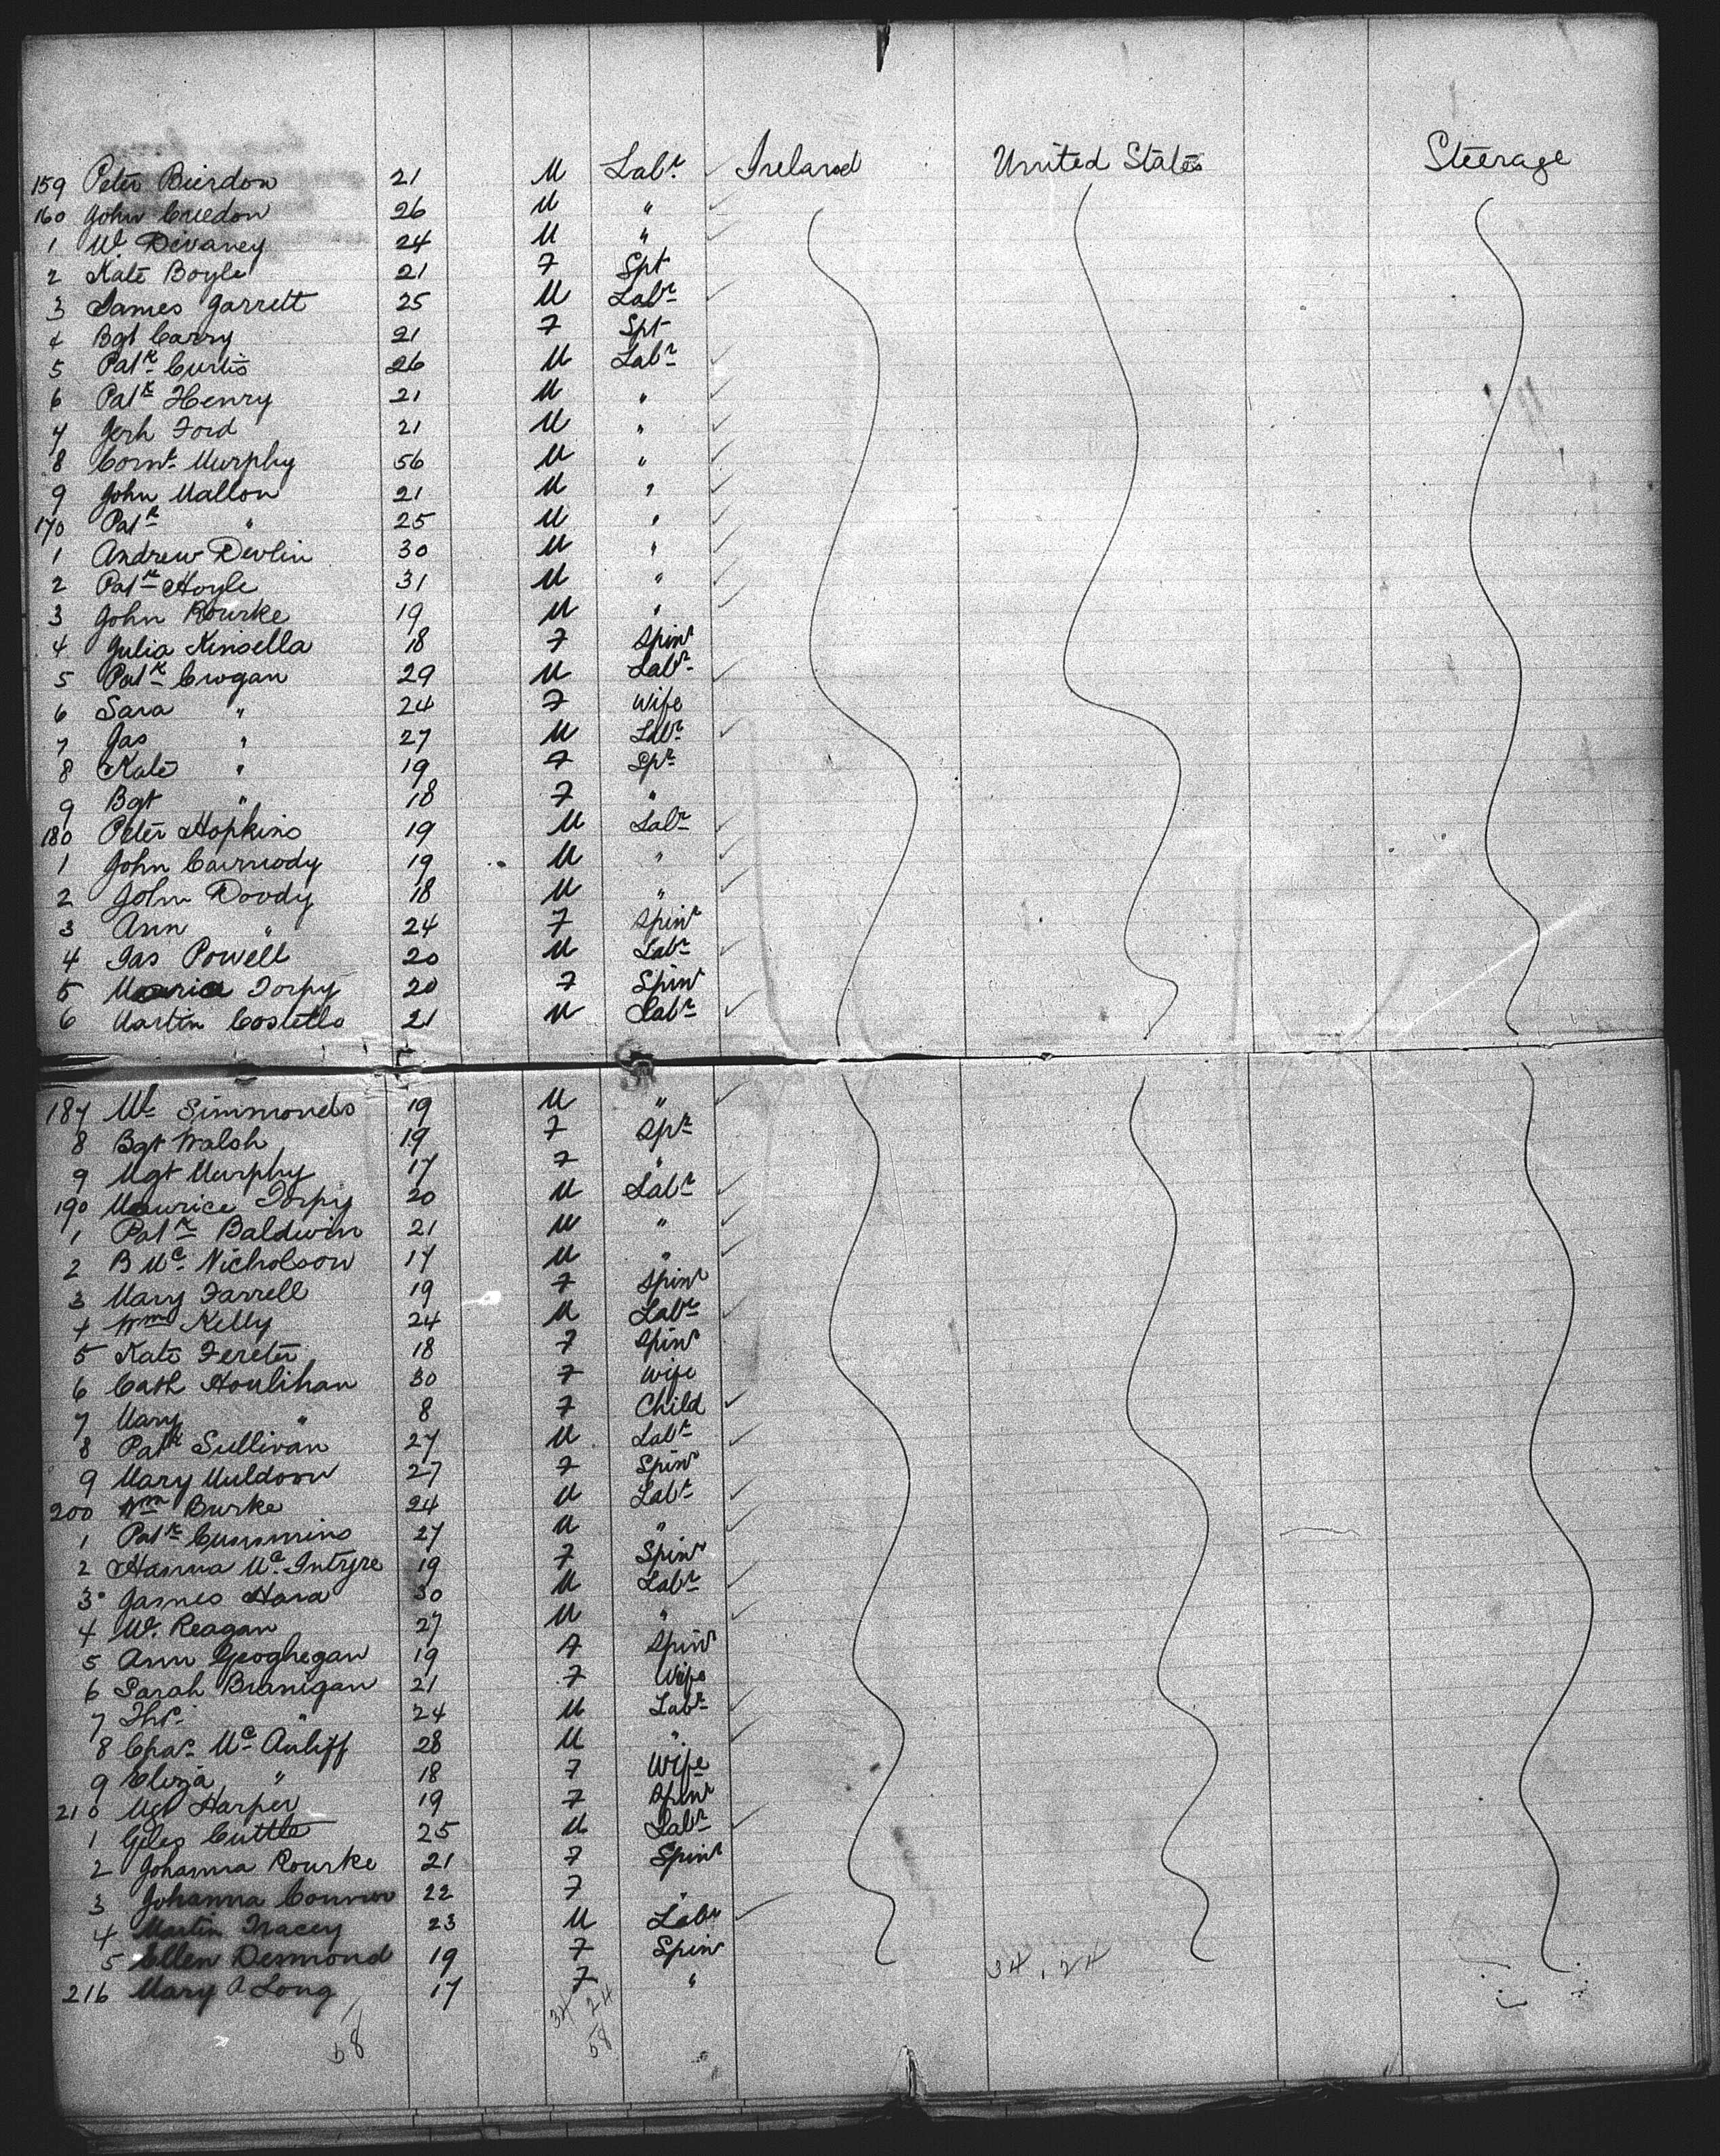 159 Peter Bierdon 21 M Labr. Ireland United States Steerage
160 John Creedon 26 M "
1 W. Devaney 24 M "
2 Kate Boyle 21 F Spt
3 James Garrett 25 M Labr
4 Bgt Carry 21 F Spt
5 Patk Curtis 26 M Labr
6 Patk Henry 21 M "
7 Jerh Ford 21 M "
8 Corns. Murphy 56 M "
9 John Mallon 21 M "
170 Patk " 25 M "
1 Andrew Devlin 30 M "
2 Patk Hoyle 31 M "
3 John Rourke 19 M "
4 Julia Kinsella 18 F Spinr
5 Patk Crogan 29 M Labr
6 Sara " 24 F Wife
7 Jas " 27 M Labr
8 Kate " 19 F Spr
9 Bgt " 18 F "
180 Peter Hopkins 19 M Labr
1 John Carmody 19 M "
2 John Doody 18 M "
3 Ann " 24 F Spinr
4 Jas Powell 20 M Labr
5 Torpy 20 F Spinr
6 Martin Costello 21 M Labr
187 Wm Simmonds 19 M "
8 Bgt Walsh 19 F Spr
9 Mgt Murphy 17 F "
190 Maurice Torpy 20 M Labr
1 Patk Baldwin 21 M "
2 B Mc Nicholson 17 M "
3 Mary Farrell 19 F Spinr
4 Wm Kelly 24 M Labr
5 Kate Fereter 18 F Spinr
6 Cath Houlihan 30 F Wife
7 Mary " 8 F Child
8 Patk Sullivan 27 M Labr
9 Mary Muldoon 27 F Spinr
200 Wm Burke 24 M Labr
1 Patk Cummins 27 M "
2 Hanna Mc Intyre 19 F Spinr
3 James Hara 30 M Labr
4 W. Reagan 27 M "
5 Ann Geoghegan 19 F Spinr
6 Sarah Branigan 21 F Wife
7 Thos. " 24 M Labr
8 Chas. Mc Auliff 28 M "
9 Eliza " 18 F Wife
210 Mgt Harper 19 F Spinr
1 Giles Cuttle 25 M Labr
2 Johanna Rourke 21 F Spinr
3 Johanna Connor 22 F "
4 Martin Tracey 23 M Labr
5 Ellen Desmond 19 F Spin
216 Mary A Long 17 F "
34 . 24
34 24
58 58